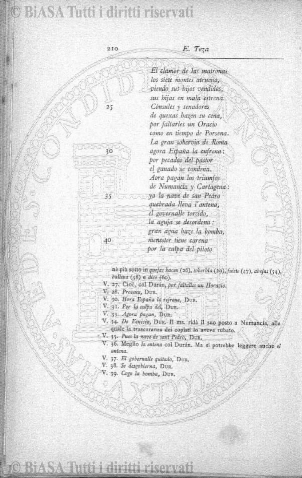 © BiASA Tutti i diritti riservati
210 E. Teza
El clamor de las matronas
los siete montes atruena,
viendo sus hijos vendidos,
sus hijas en mala estrena.
25 Cónsules y senadores
de quexas hazen su cena,
por faltarles un Oracio
como en tiempo de Porsena.
La gran soberuia de Roma
30 agora España la enfrena:
por pecados del pastor
el ganado se condena.
Aora pagan los triumfos
de Numancia y Cartagena:
35 ya la naue de san Pedro
quebrada lleva l'antena,
el governalle torcido,
la aguja se desordena:
gran agua haze la bomba,
40 menester tiene carena
por la culpa del piloto
V. 27. Cioè, col Durán, por faltalle un Horacio.
V. 28. DUR.
V. 30. Hora España la enfrena, DUR.
V. 31. Por la culpa del, DUR.
V. 33. Agora pagan, DUR.
V. 34. De DUR. Il ms. ridà il suo posto a Numancia, alla
quale la trascuranza dei copisti lo aveva rubato.
V. 35. Pues la nave de sant Pedro, DUR.
V. 36. Meglio la entena col Durán. Ma si potrebbe leggere anche
entena.
V. 37. El gobernalle quitado, DUR.
V. 38. Se desgobierna, DUR.
V. 39. Coge la bomba, DUR.
© BiASA Tutti i diritti riservati